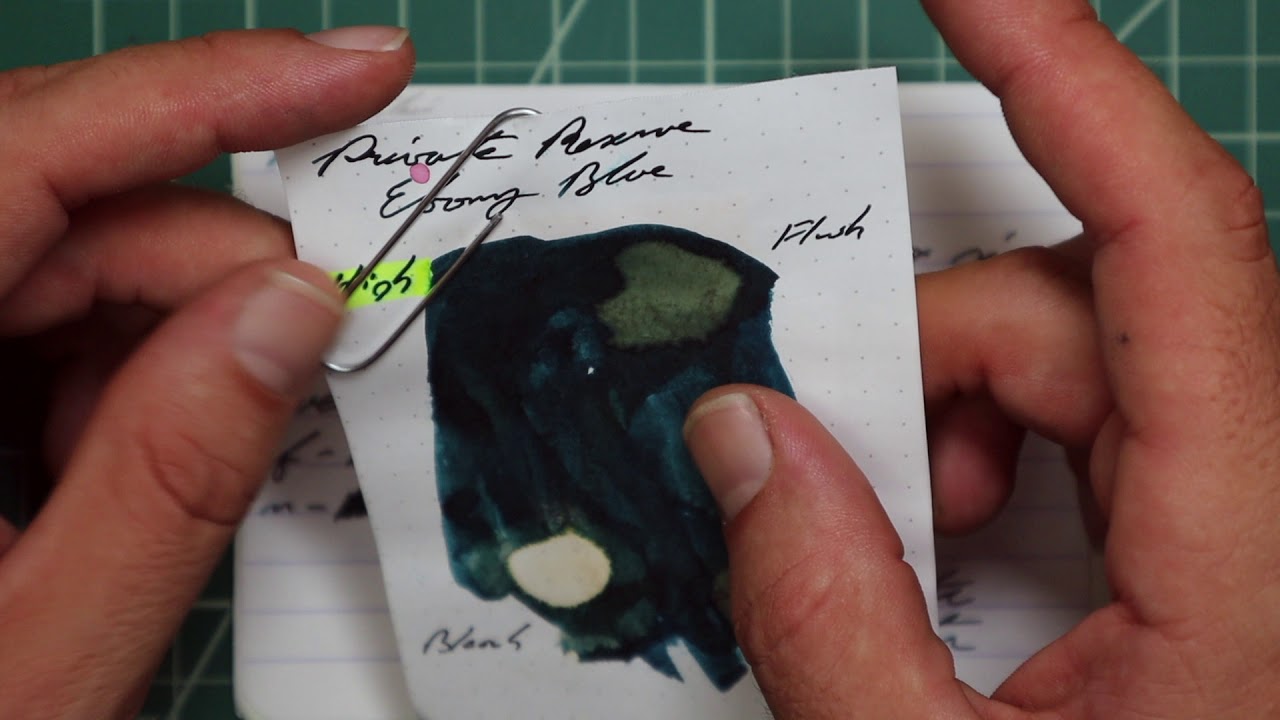 Private Reserve
Ebony Blue
Flush
High
Bleach